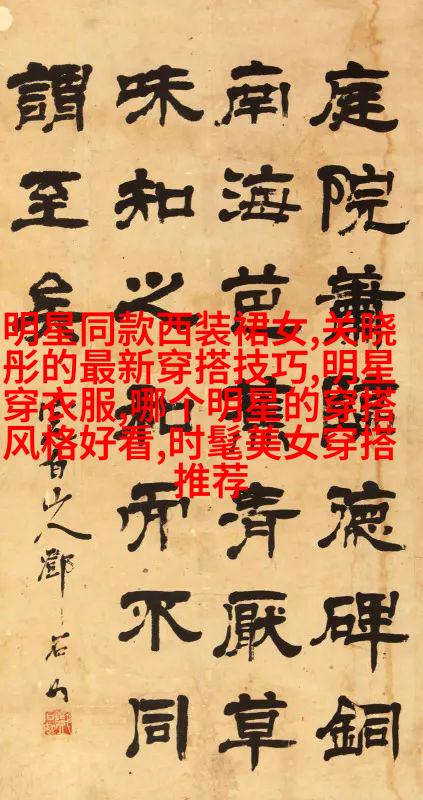 庭院蕭德碑銅
南海芭蕉清厭草
味知之而不同
謂至矣
山人鄧石如
明星同款西装裙女,关晓
彤的最新穿搭技巧,明星
穿衣服,哪个明星的穿搭
风格好看,时髦美女穿搭
推荐